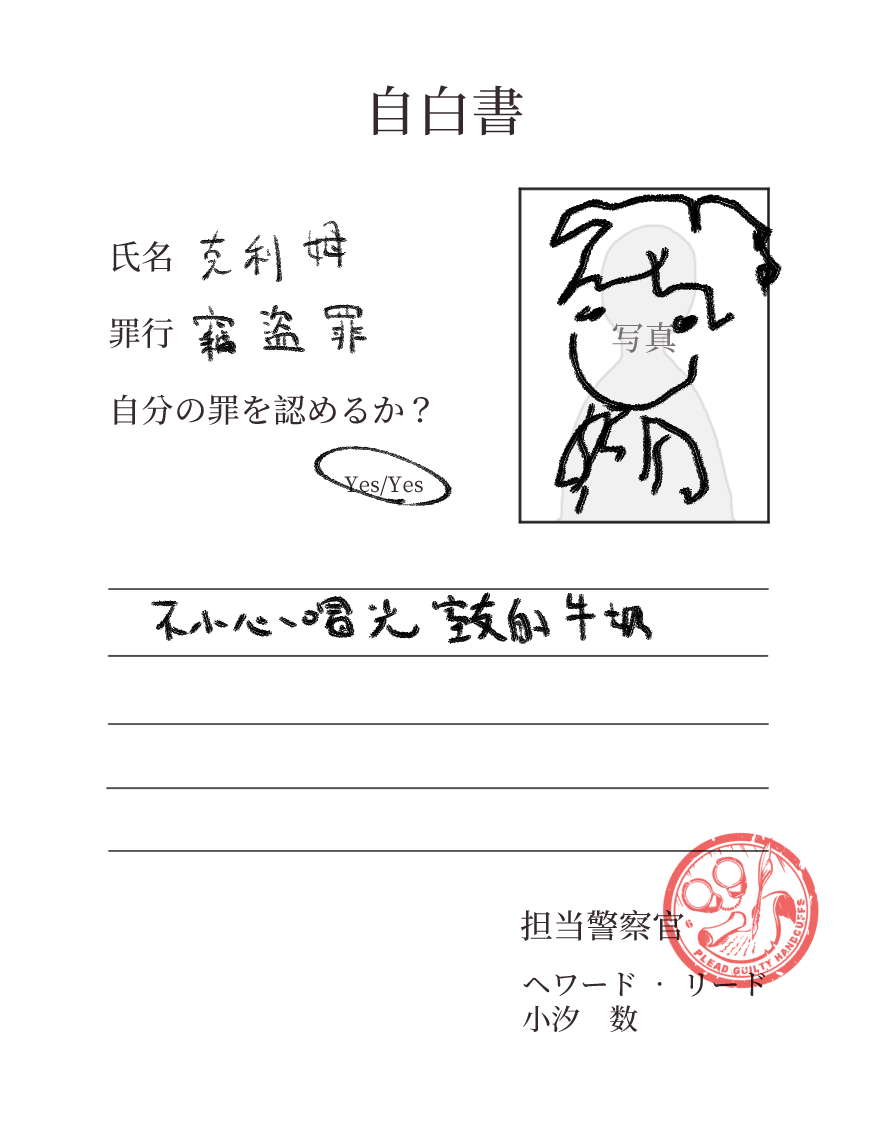 自白書
氏名 克利姆
罪行 竊盜罪
写真
自分の罪を認めるか？
Yes/Yes
不小心喝光 的牛奶
担当警察官
ヘワード · リード
小汐 数
6
PLEAD GUILTY HANDCUFFS